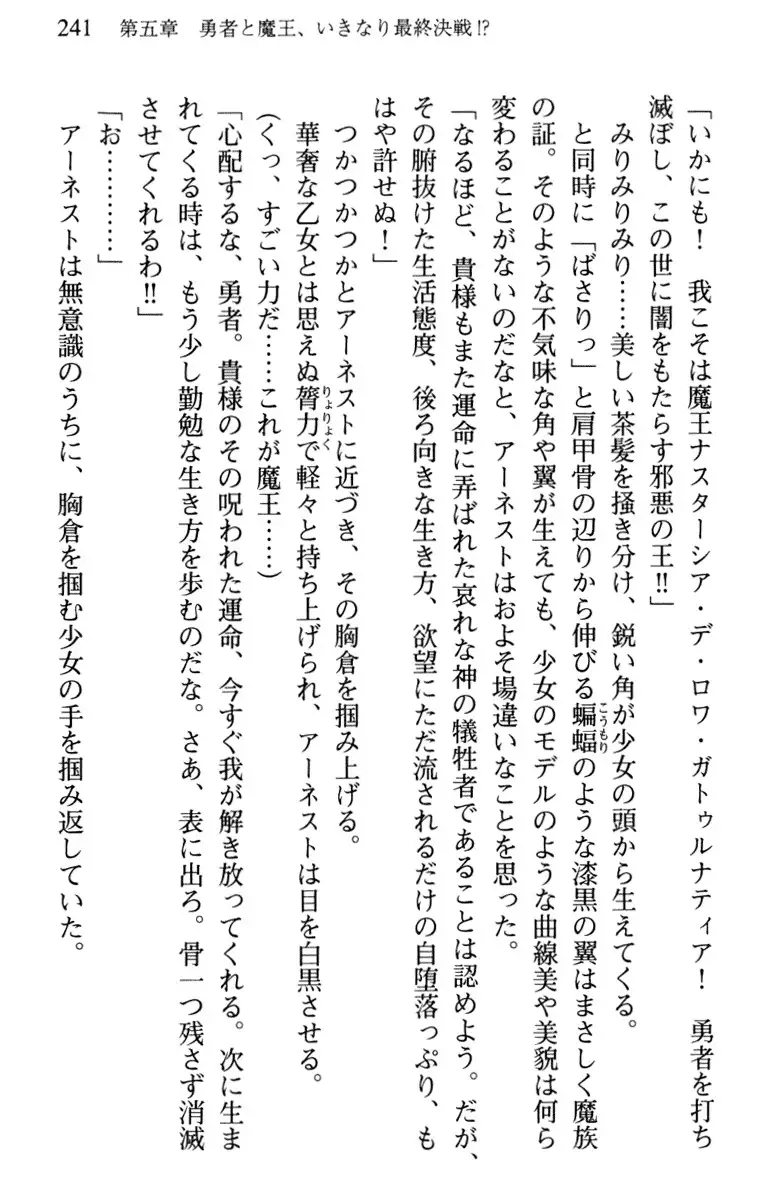 241　第五章　勇者と魔王、いきなり最終決戦!?
「いかにも！　我こそは魔王ナスターシア・デ・ロワ・ガトゥルナティア！　勇者を打ち
滅ぼし、この世に闇をもたらす邪悪の王!!」
　みりみりみり……美しい茶髪を掻き分け、鋭い角が少女の頭から生えてくる。
　と同時に「ばさりっ」と肩甲骨の辺りから伸びる蝙蝠（こうもり）のような漆黒の翼はまさしく魔族
の証。そのような不気味な角や翼が生えても、少女のモデルのような曲線美や美貌は何ら
変わることがないのだなと、アーネストはおよそ場違いなことを思った。
「なるほど、貴様もまた運命に弄ばれた哀れな神の犠牲者であることは認めよう。だが、
その腑抜けた生活態度、後ろ向きな生き方、欲望にただ流されるだけの自堕落っぷり、も
はや許せぬ！」
　つかつかつかとアーネストに近づき、その胸倉を掴み上げる。
　華奢な乙女とは思えぬ膂力（りょりょく）で軽々と持ち上げられ、アーネストは目を白黒させる。
（くっ、すごい力だ……これが魔王……）
「心配するな、勇者。貴様のその呪われた運命、今すぐ我が解き放ってくれる。次に生ま
れてくる時は、もう少し勤勉な生き方を歩むのだな。さあ、表に出ろ。骨一つ残さず消滅
させてくれるわ!!」
「お…………」
　アーネストは無意識のうちに、胸倉を掴む少女の手を掴み返していた。